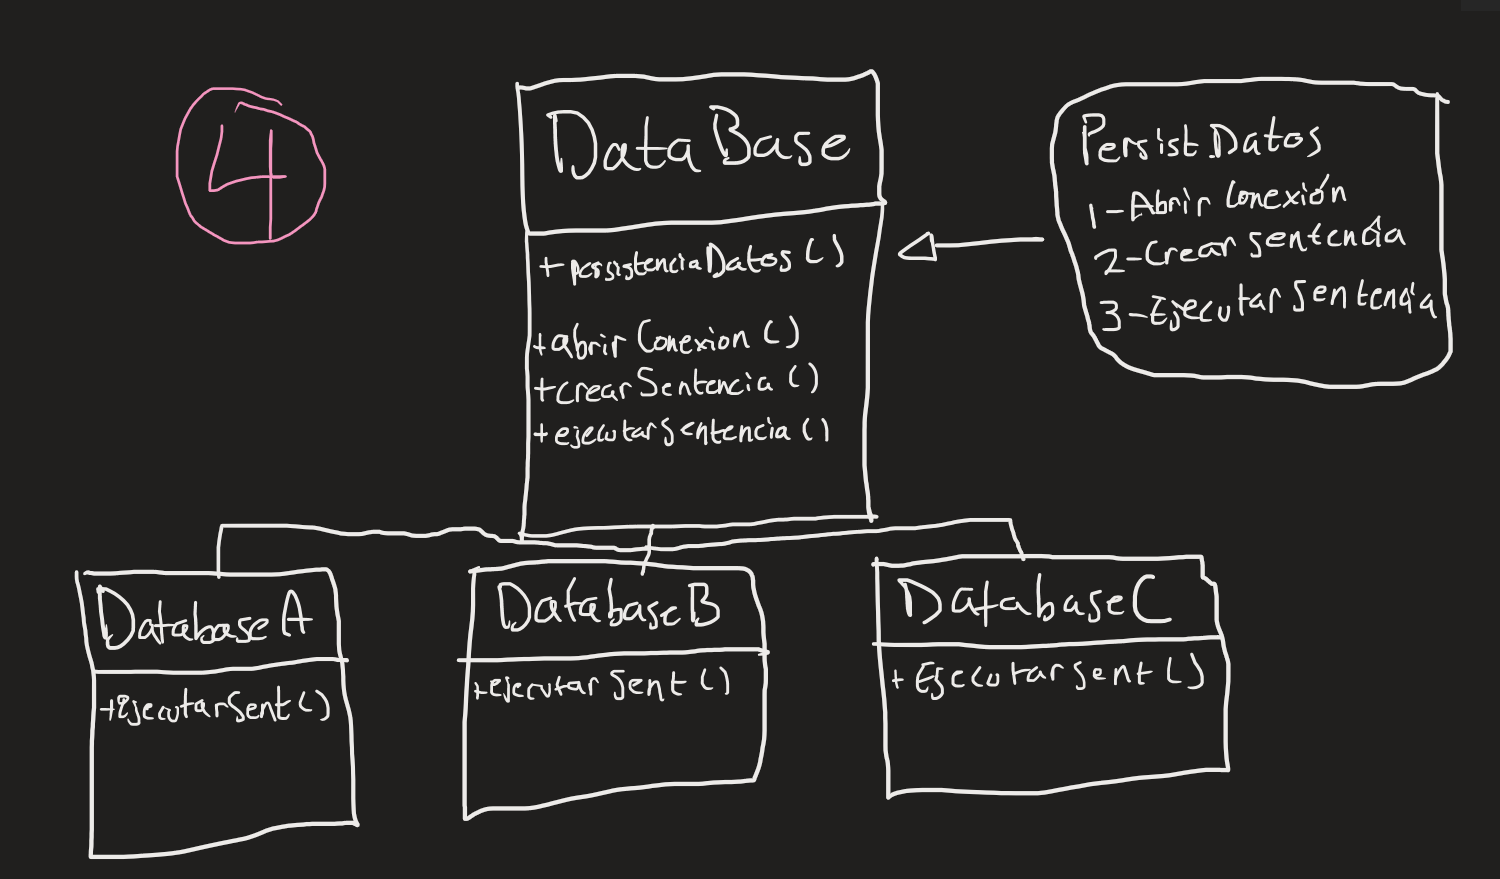 4
DataBase
+persistenciaDatos()
+abrirConexion()
+crearSentencia()
+ejecutarSentencia()
PersistDatos
1-Abrir Conexión
2-Crear Sentencia
3-Ejecutar Sentencia
DatabaseA
+EjecutarSent()
DatabaseB
+ejecutarSent()
DatabaseC
+EjecutarSent()